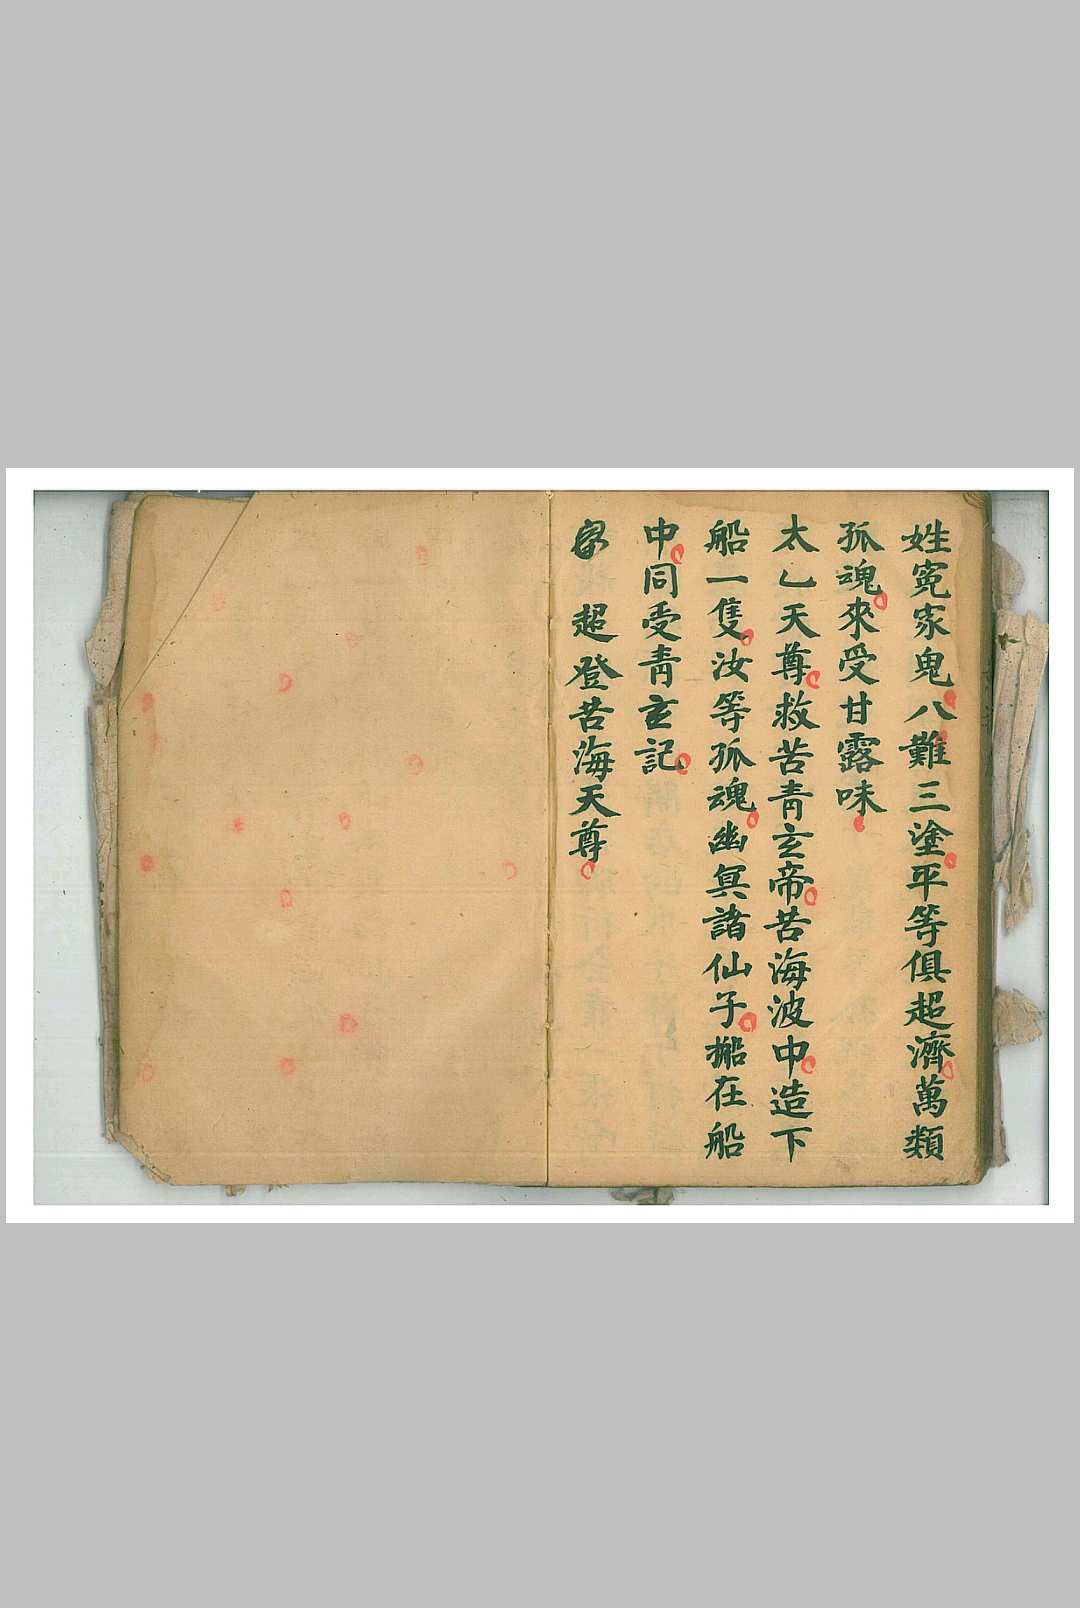 姓冤家鬼八難三塗平等俱超濟萬類
孤魂來受甘露味
太乙天尊救苦青玄帝苦海波中造下
船一隻汝等孤魂幽冥諸仙子搬在船
中同受青玄記
超登苦海天尊